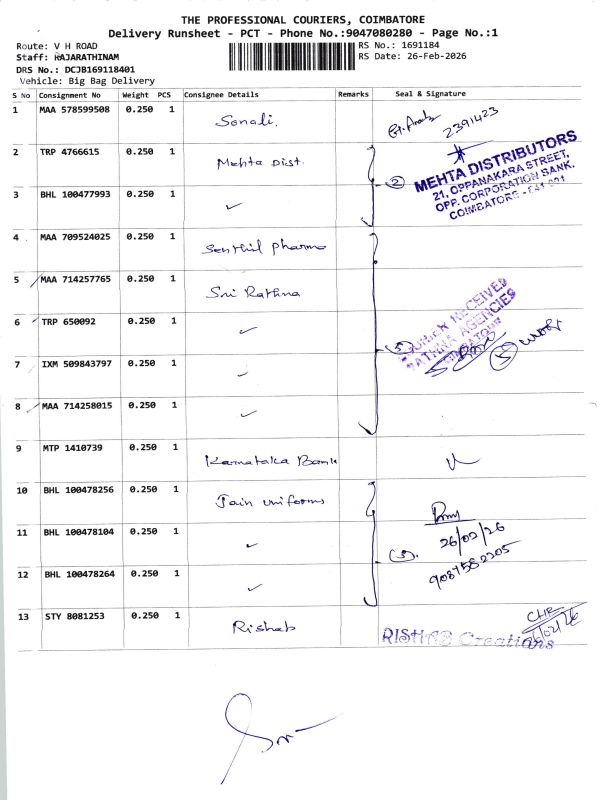 THE PROFESSIONAL COURIERS, COIMBATORE
Delivery Runsheet - PCT - Phone No.:9047080280 - Page No.:1
Route: V H ROAD
RS No.: 1691184
Staff: RAJARATHINAM
RS Date: 26-Feb-2026
DRS No.: DCJB169118401
Vehicle: Big Bag Delivery
S No Consignment No Weight PCS Consignee Details Remarks Seal & Signature
1 MAA 578599508 0.250 1 Sonali. 2391423
2 TRP 4766615 0.250 1 Mehta Dist.
MEHTA DISTRIBUTORS
21, OPPANAKARA STREET,
OPP. CORPORATION BANK,
COIMBATORE - 641 001
3 BHL 100477993 0.250 1 ✓ 2
4 MAA 709524025 0.250 1 Senthil pharma
5 MAA 714257765 0.250 1 Sri Rathna
6 TRP 650092 0.250 1 ✓ 5
RECEIVED
RATHNA AGENCIES
5
7 IXM 509843797 0.250 1 ✓
8 MAA 714258015 0.250 1 ✓
9 MTP 1410739 0.250 1 Karnataka Bank
10 BHL 100478256 0.250 1 Jain uniforms
11 BHL 100478104 0.250 1 ✓ 26/02/26
12 BHL 100478264 0.250 1 ✓
13 STY 8081253 0.250 1 Rishab
RISHAB Creations